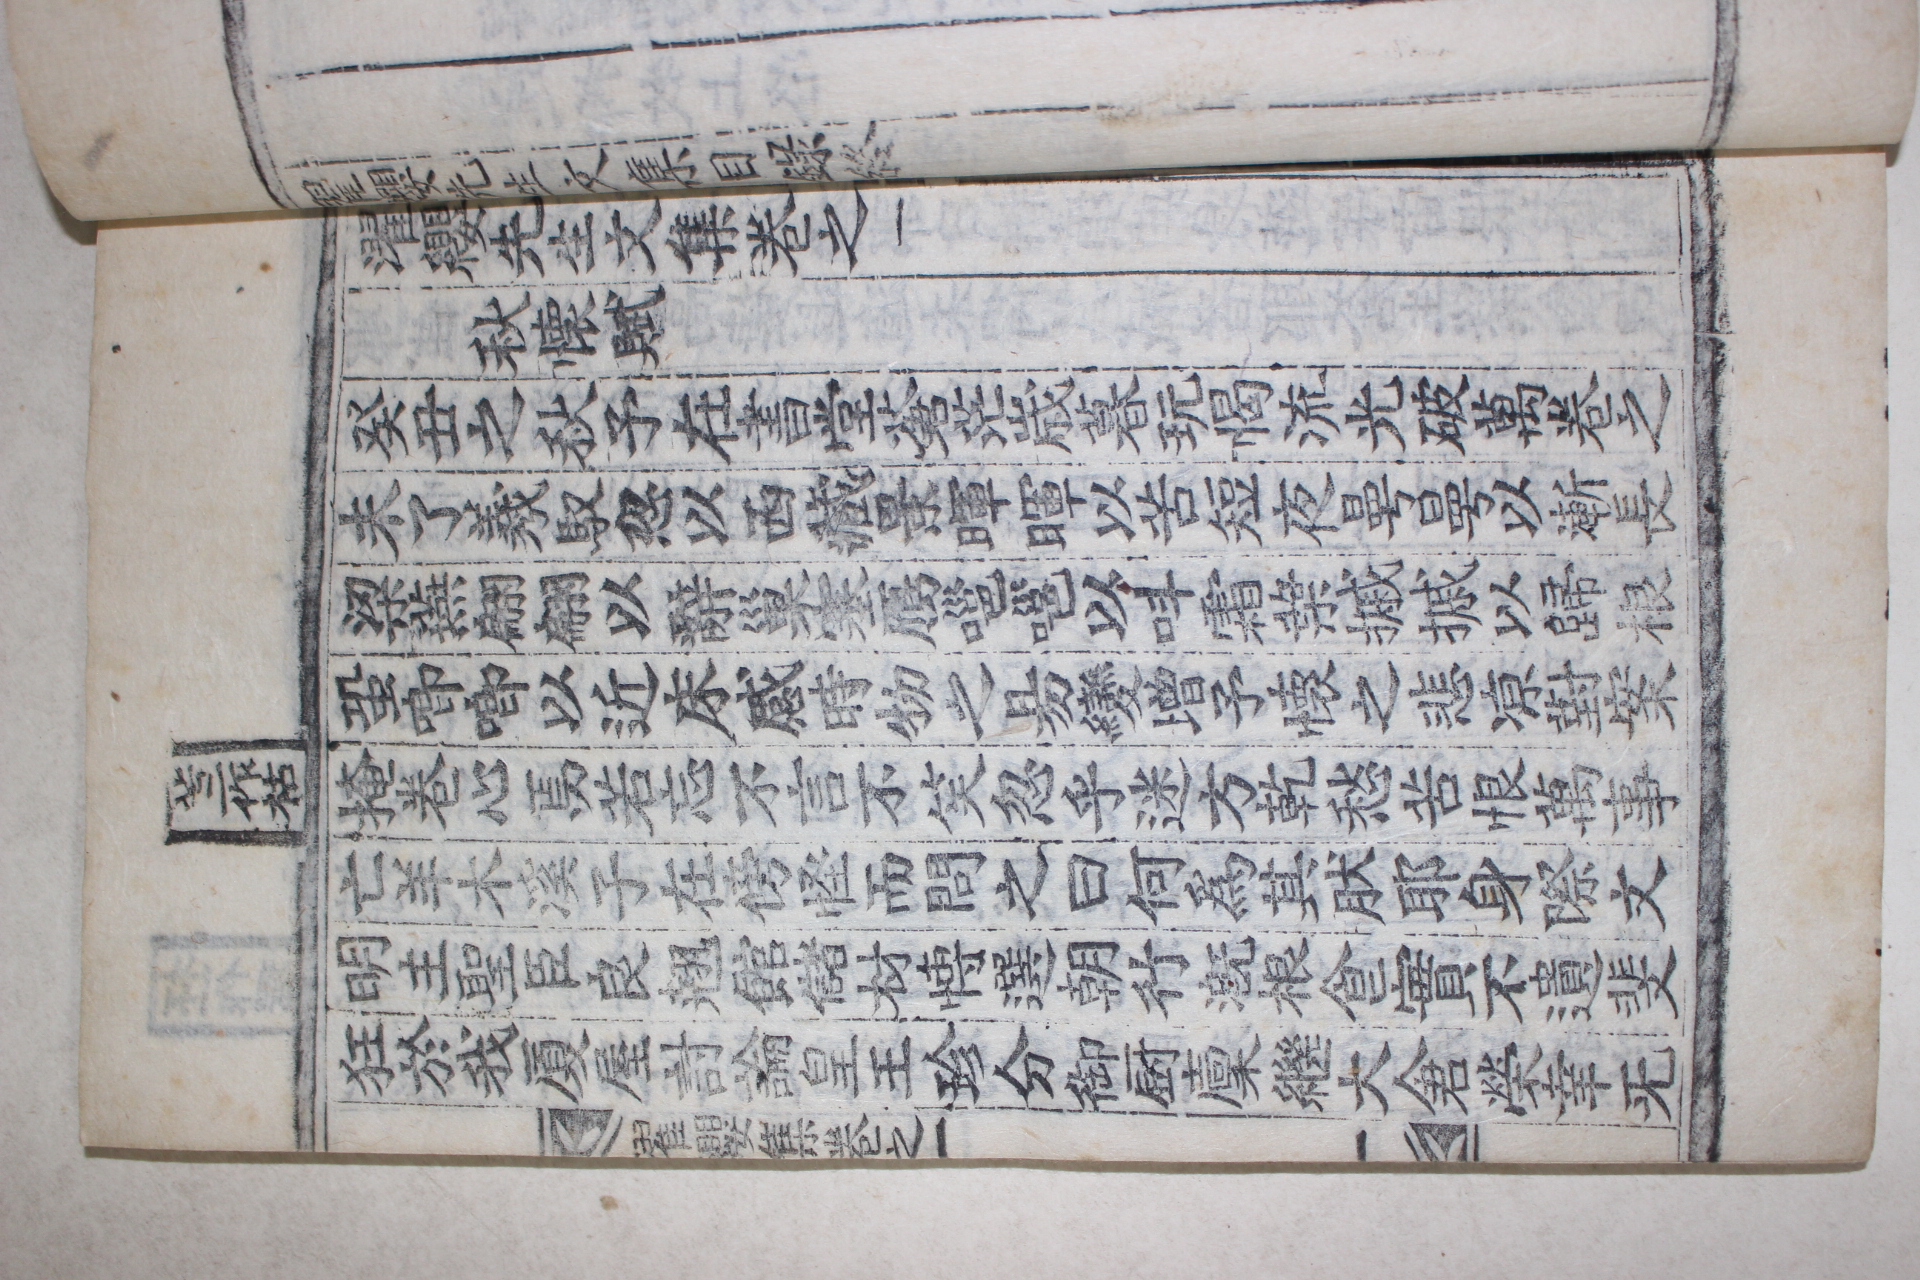 濯纓先生文集目錄終
濯纓先生文集卷之一
秋懷賦
癸丑之秋予在書堂蒼茫歲暮玩愒流光破萬卷之
未了羲馭忽以西藏景暉暉以苦短夜曼曼以漸長
梁燕翩翩以辭巢塞鴈嗈嗈以叫霜葉摵摵以歸根
蛩喞喞以近床感時物之易變增予懷之悲凉對案
掩卷心焉若忘不言不笑忽乎迷方乾愁苦恨萬事
亡羊木溪子在傍怪而問之曰何爲其狀耶身際文
明主聖臣良翹館儲材慱選朝行漑根食實不遺斐
狂於我厦屋討論皇王珍分御厨廩繼大倉榮幸旡
苦二作枯
濯纓集卷之一
一